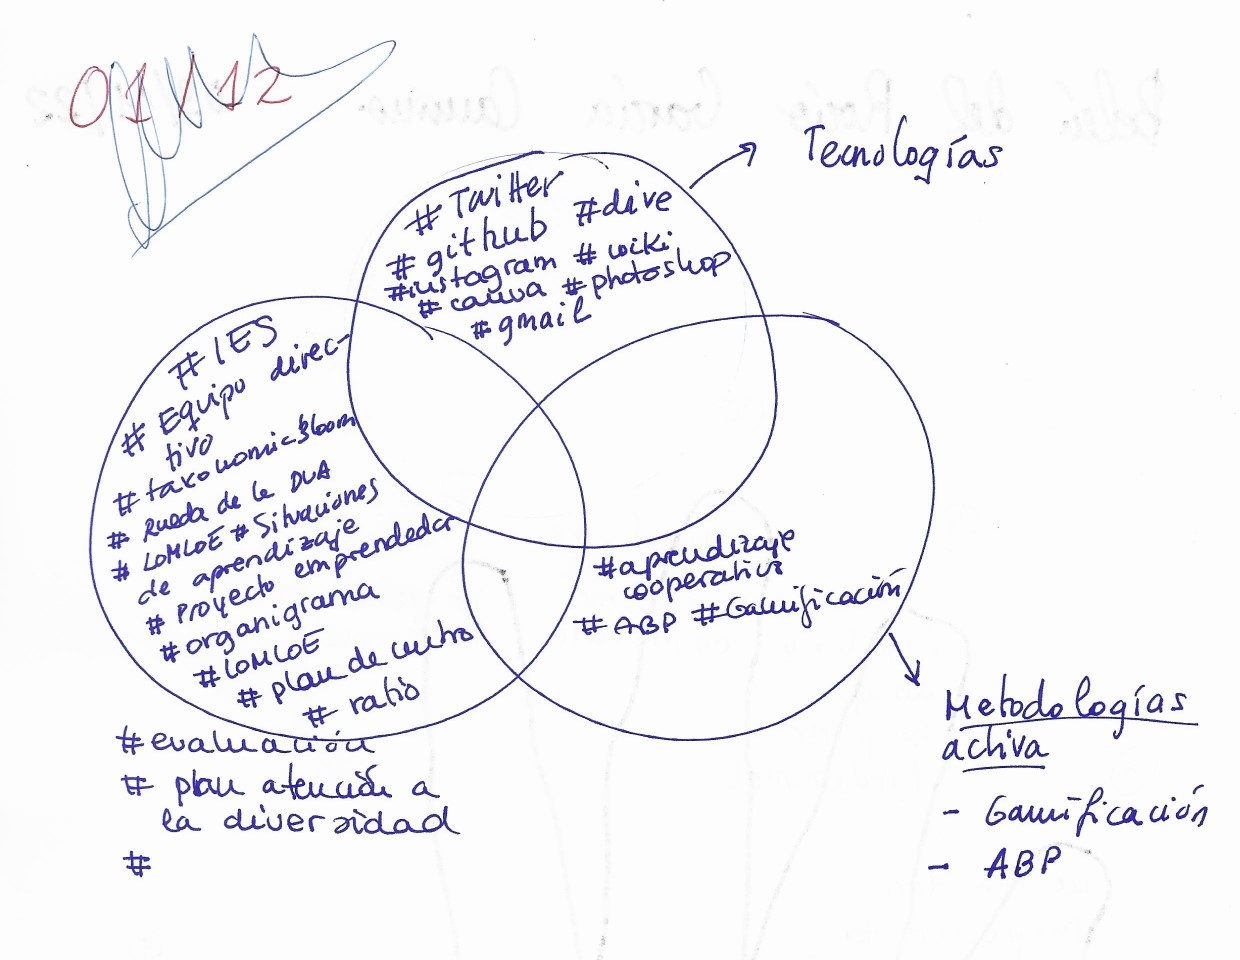 01/12
Tecnologías
# Twitter
# github #dive
#instagram # wiki
# canva #photoshop
# gmail
# IES
# Equipo direc-
tivo
# taxonomic bloom
# Rueda de la DUA
# LOMLOE # Situaciones
de aprendizaje
# Proyecto emprendedor
# organigrama
# LOMLOE
# plan de centro
# ratio
# evaluación
# plan atención a
la diversidad
#
#aprendizaje
cooperativo
# ABP #Gamificación
Metodologías
activa
- Gamificación
- ABP